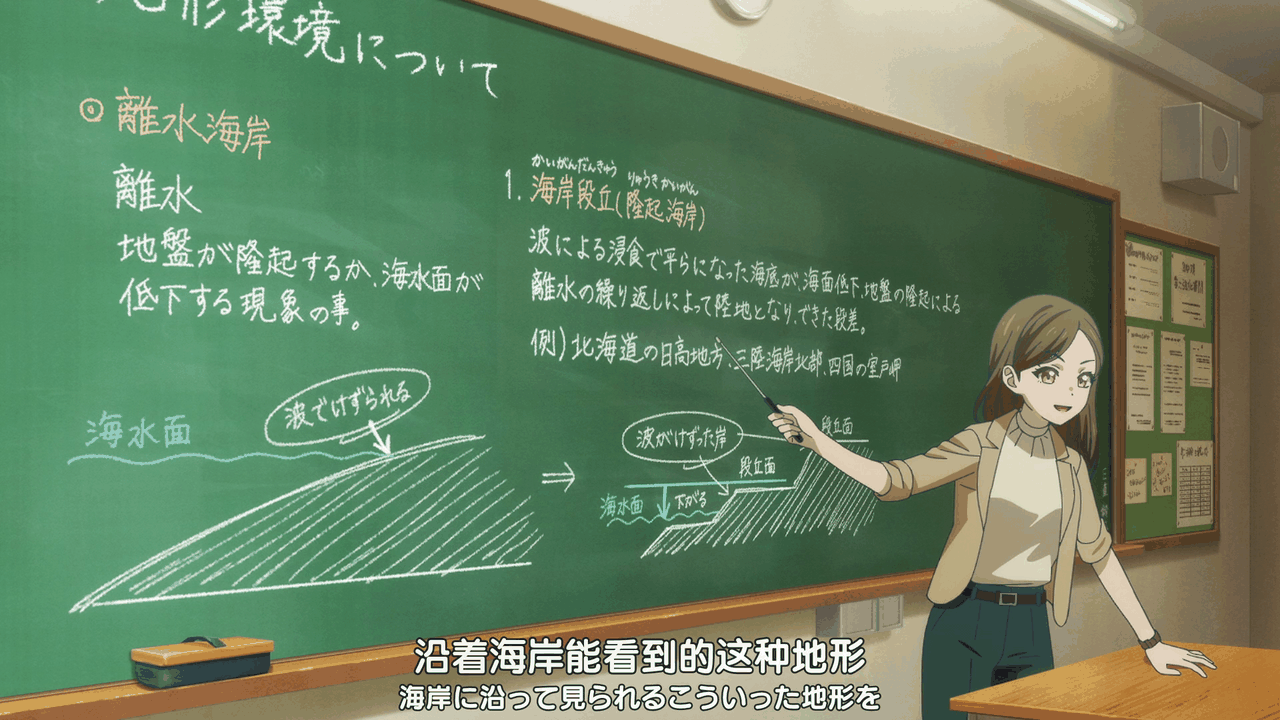 地形環境について
◎離水海岸
離水
地盤が隆起するか、海水面が
低下する現象の事。
波でけずられる
海水面
かいがんだんきゅう りゅうきかいがん
1. 海岸段丘(隆起海岸)
波による浸食で平らになった海底が、海面低下、地盤の隆起による
離水の繰り返しによって陸地となり、できた段差。
例)北海道の日高地方、三陸海岸北部、四国の室戸岬
波がけずった岸
段丘面
段丘面
海水面
下がる
沿着海岸能看到的这种地形
海岸に沿って見られるこういった地形を